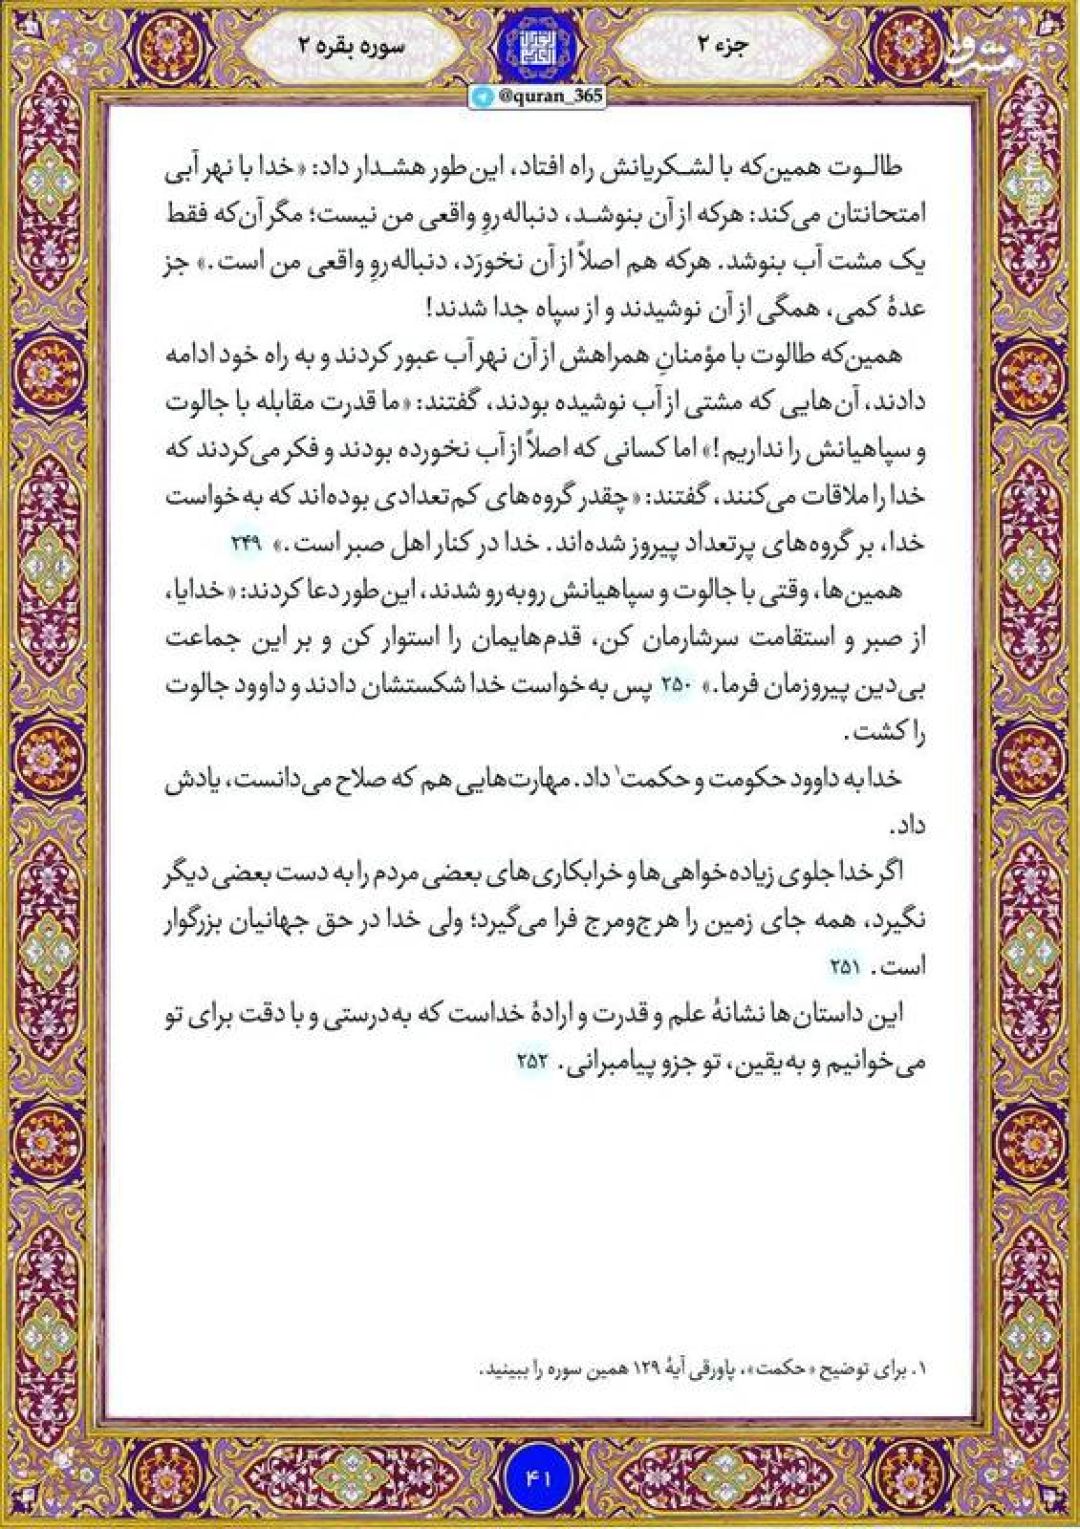 جزء ۲
سوره بقره ۲
@quran_365
مشرق
طالـوت همین‌که با لشـکریانش راه افتاد، این‌طور هشـدار داد: «خدا با نهر آبی
امتحانتان می‌کند: هرکه از آن بنوشـد، دنباله‌روِ واقعی من نیست؛ مگر آن‌که فقط
یک مشت آب بنوشد. هرکه هم اصلاً از آن نخورَد، دنباله‌روِ واقعی من است.» جز
عدهٔ کمی، همگی از آن نوشیدند و از سپاه جدا شدند!
همین‌که طالوت با مؤمنانِ همراهش از آن نهر آب عبور کردند و به راه خود ادامه
دادند، آن‌هایی که مشتی از آب نوشیده بودند، گفتند: «ما قدرت مقابله با جالوت
و سپاهیانش را نداریم!» اما کسانی که اصلاً از آب نخورده بودند و فکر می‌کردند که
خدا را ملاقات می‌کنند، گفتند: «چقدر گروه‌های کم‌تعدادی بوده‌اند که به خواست
خدا، بر گروه‌های پرتعداد پیروز شده‌اند. خدا در کنار اهل صبر است.» ۲۴۹
همین‌ها، وقتی با جالوت و سپاهیانش روبه‌رو شدند، این‌طور دعا کردند: «خدایا،
از صبر و استقامت سرشارمان کن، قدم‌هایمان را استوار کن و بر این جماعت
بی‌دین پیروزمان فرما.» ۲۵۰ پس به خواست خدا شکستشان دادند و داوود جالوت
را کشت.
خدا به داوود حکومت و حکمت۱ داد. مهارت‌هایی هم که صلاح می‌دانست، یادش
داد.
اگر خدا جلوی زیاده‌خواهی‌ها و خرابکاری‌های بعضی مردم را به دست بعضی دیگر
نگیرد، همه جای زمین را هرج‌ومرج فرا می‌گیرد؛ ولی خدا در حق جهانیان بزرگوار
است. ۲۵۱
این داستان‌ها نشانهٔ علم و قدرت و ارادهٔ خداست که به‌درستی و با دقت برای تو
می‌خوانیم و به‌یقین، تو جزو پیامبرانی. ۲۵۲
۱. برای توضیح «حکمت»، پاورقی آیهٔ ۱۲۹ همین سوره را ببینید.
۴۱